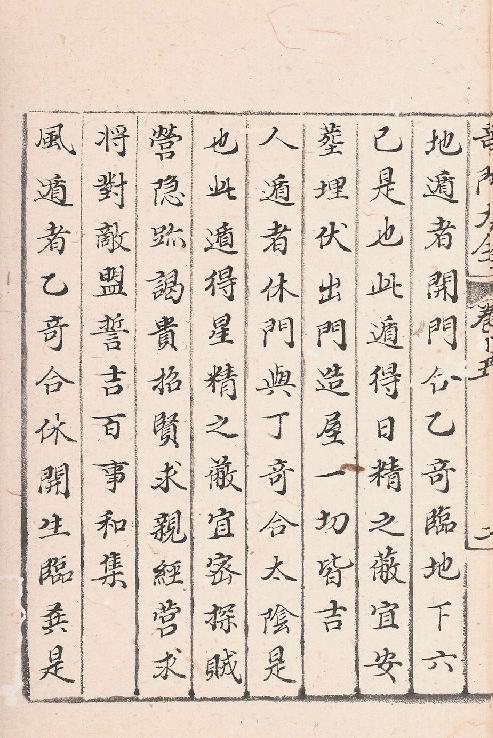 奇門大全 卷
地遁者開門合乙奇臨地下六
己是也此遁得日精之蔽宜安
塟埋伏出門造屋一切皆吉
人遁者休門與丁奇合太陰是
也此遁得星精之蔽宜密探賊
營隐跡謁貴招賢求親經营求
将對敵盟誓吉百事和集
風遁者乙奇合休開生臨巽是